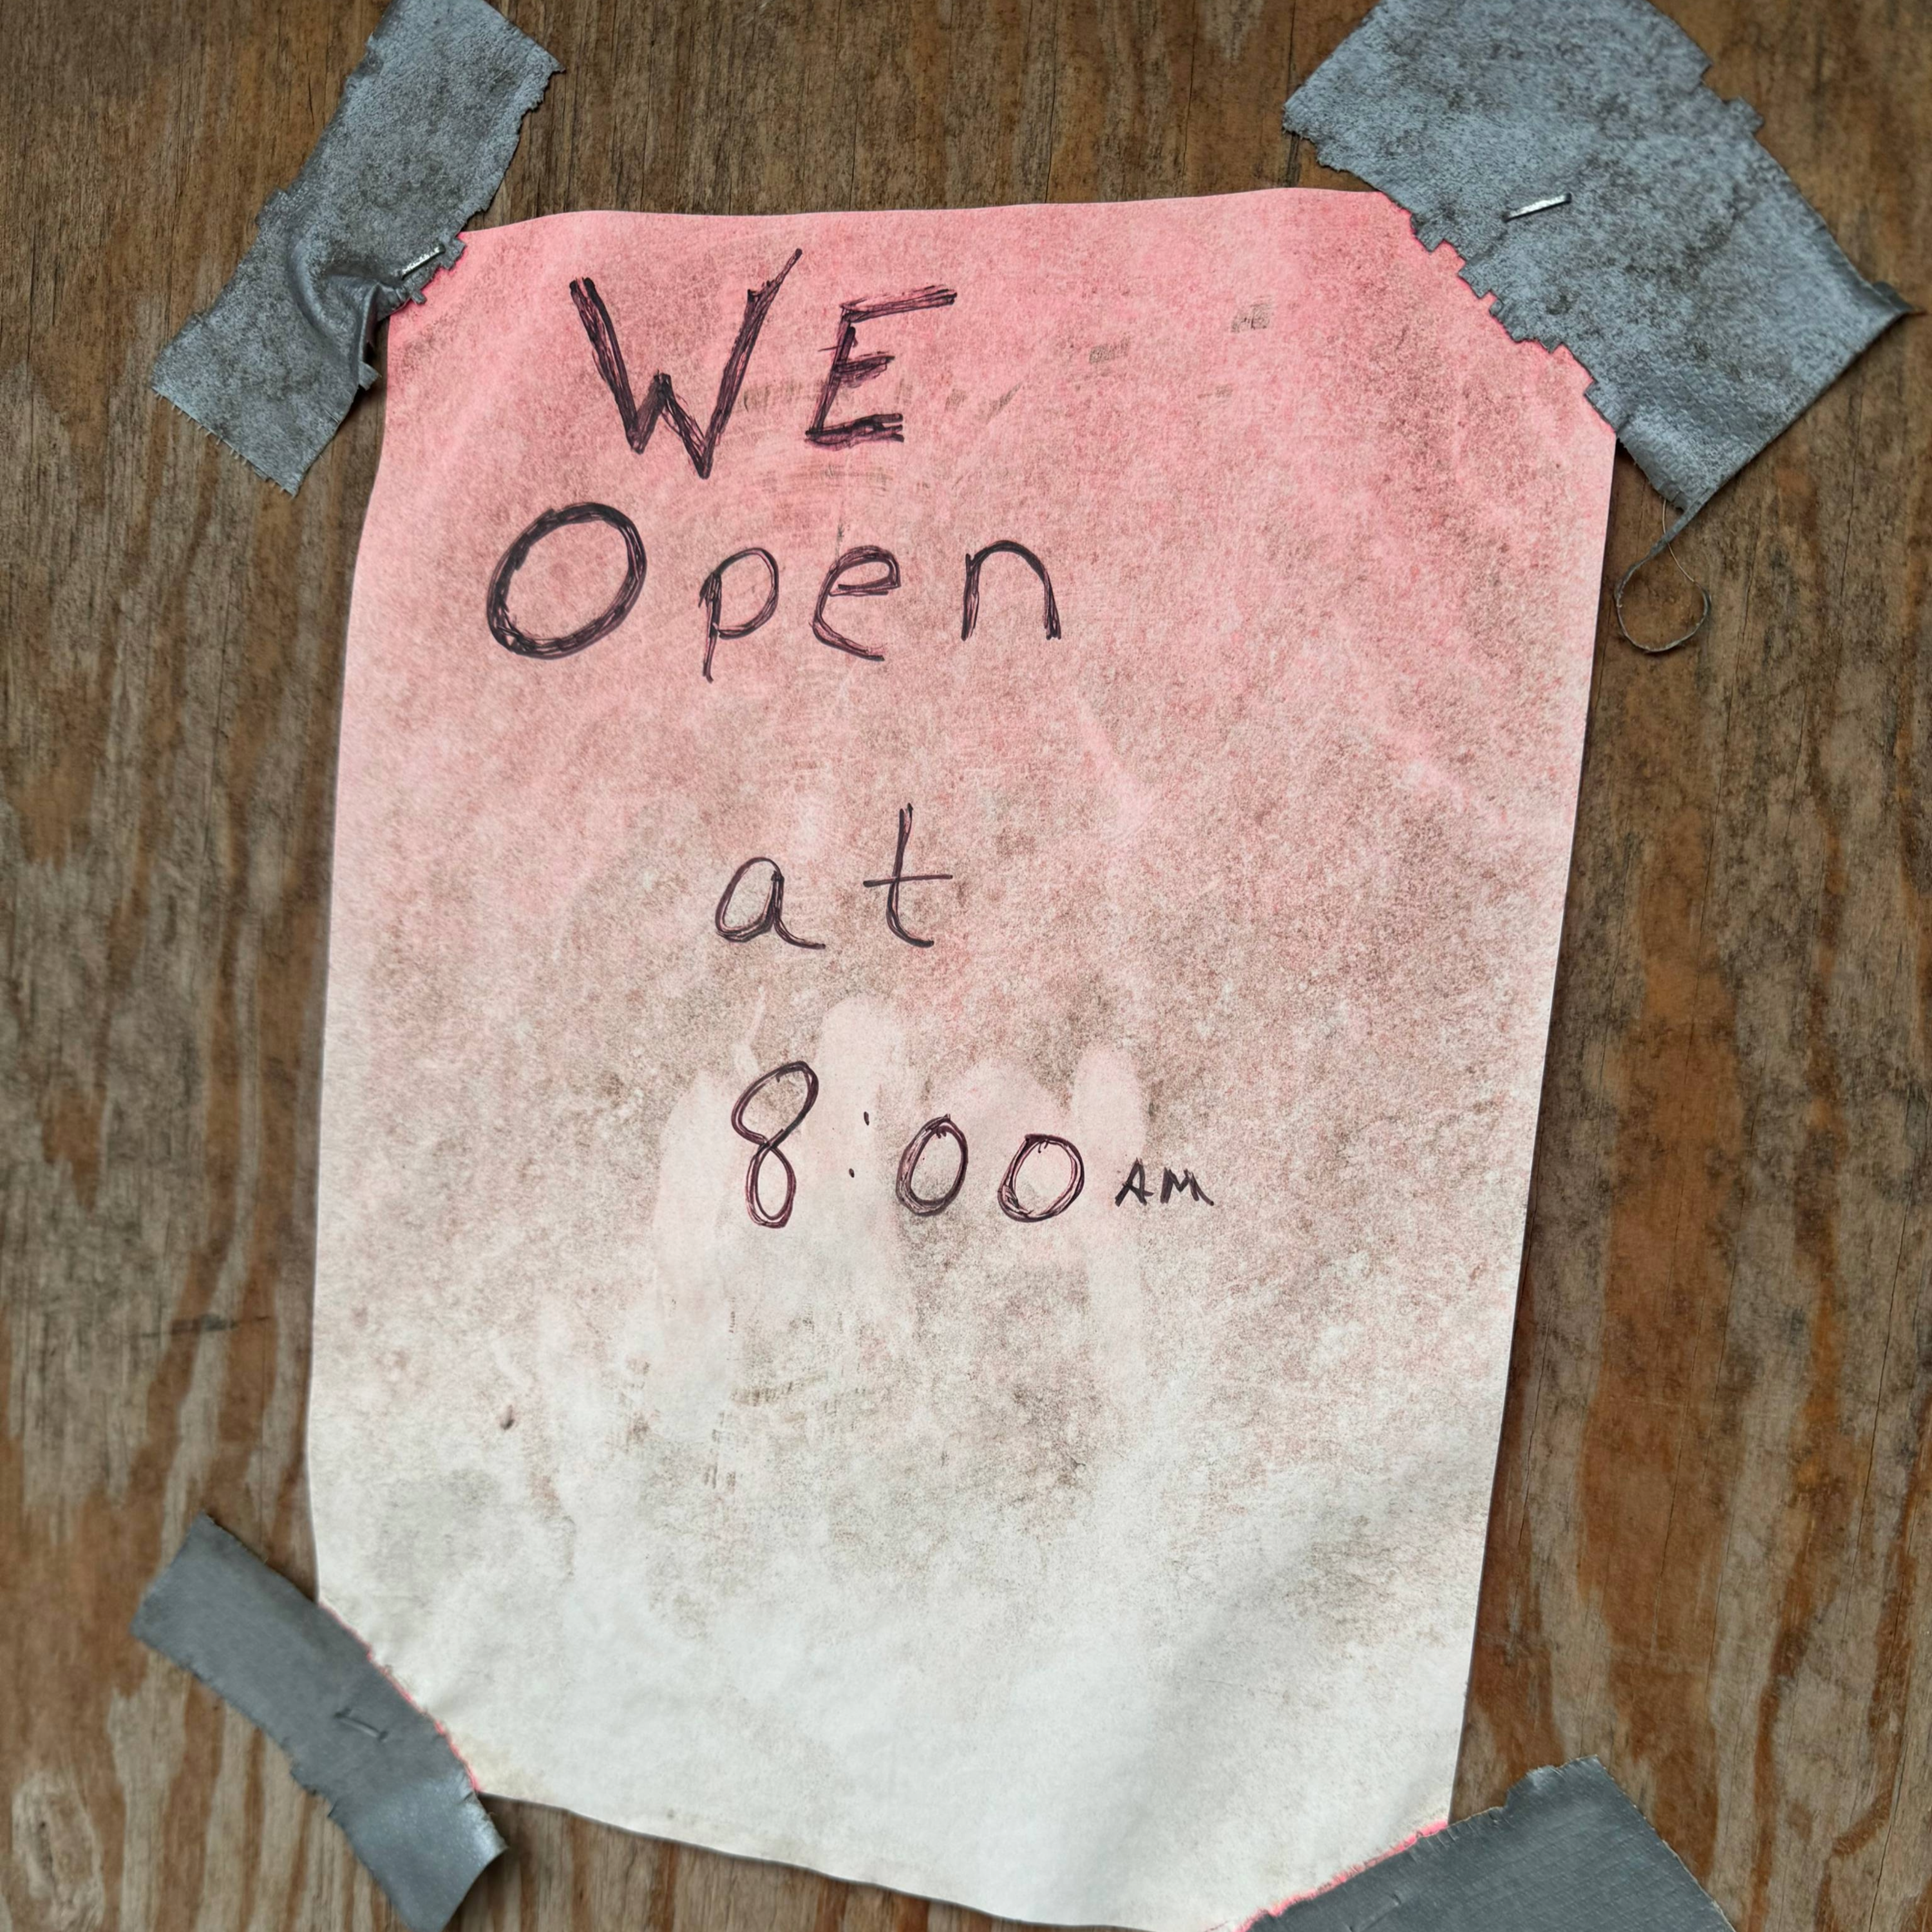 WE
Open
at
8:00 AM